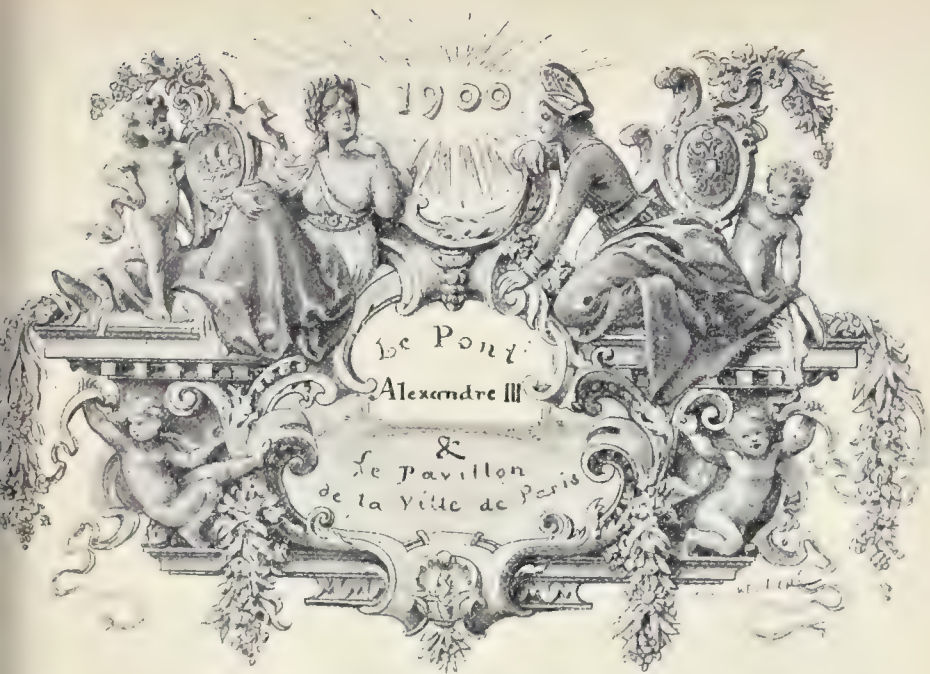 1900
Le Pont
Alexandre III
&
Le Pavillon
de la Ville de Paris